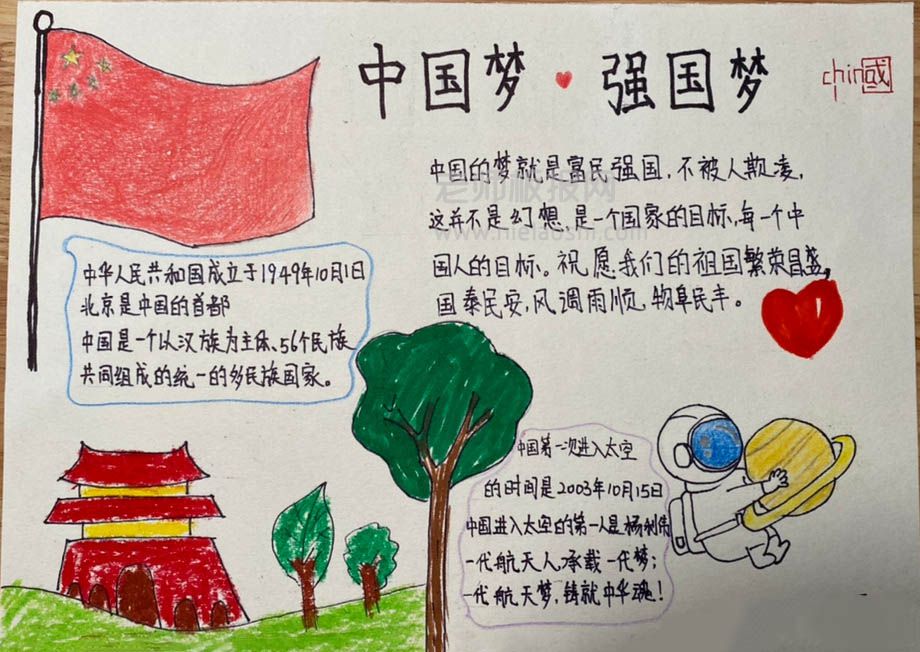 中国梦·强国梦
chin國
中国的梦就是富民强国,不被人欺凌,
老师板报网
这并不是幻想,是一个国家的目标,每一个中
国人的目标。祝愿我们的祖国繁荣昌盛,
国泰民安,风调雨顺,物阜民丰。
中华人民共和国成立于1949年10月1日
北京是中国的首都
中国是一个以汉族为主体、56个民族
共同组成的统一的多民族国家。
中国第一次进入太空
的时间是2003年10月15日
中国进入太空的第一人是杨利伟
一代航天人,承载一代梦;
一代航天梦,铸就中华魂!